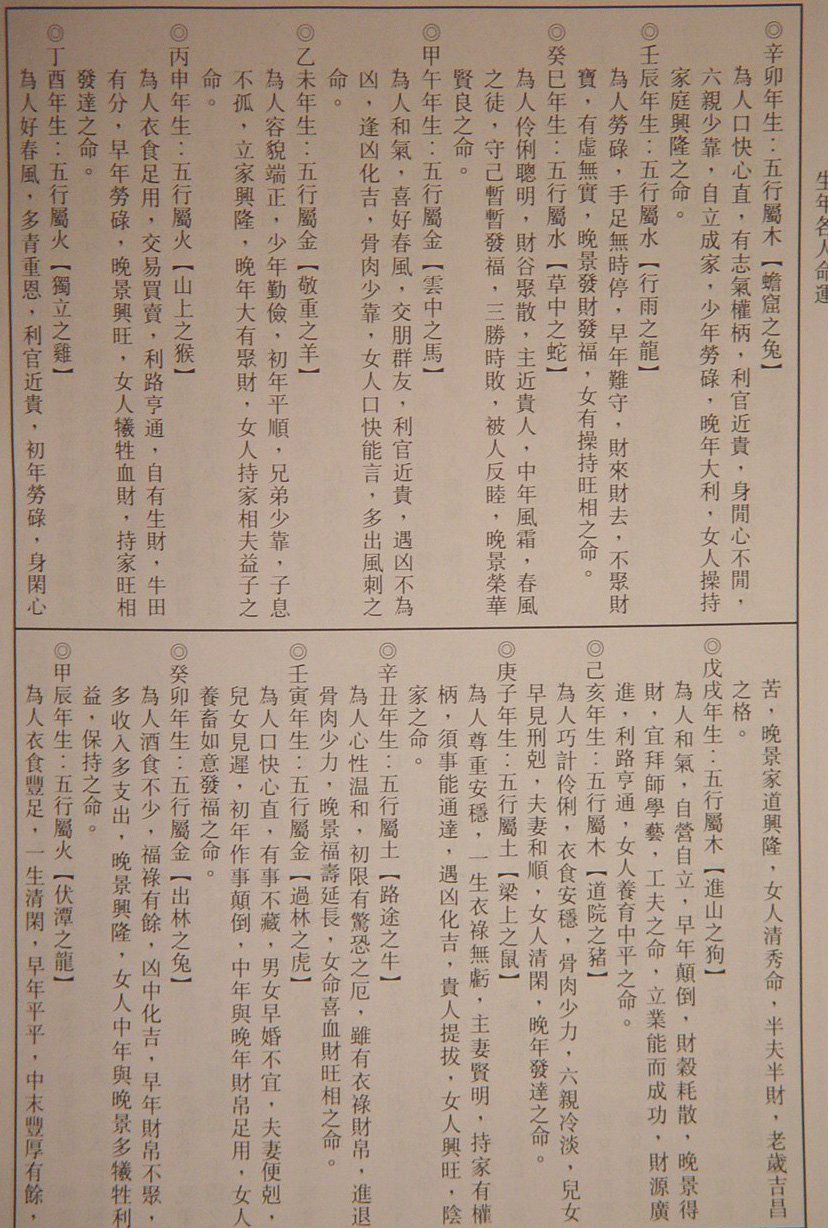 生年各人命運
◎辛卯年生：五行屬木【蟾窟之兔】
為人口快心直，有志氣權柄，利官近貴，身閒心不閒，
六親少靠，自立成家，少年勞碌，晚年大利，女人操持
家庭興隆之命。
◎壬辰年生：五行屬水【行雨之龍】
為人勞碌，手足無時停，早年難守，財來財去，不聚財
寶，有虛無實，晚景發財發福，女有操持旺相之命。
◎癸巳年生：五行屬水【草中之蛇】
為人伶俐聰明，財谷聚散，主近貴人，中年風霜，春風
之徒，守己暫暫發福，三勝時敗，被人反睦，晚景榮華
賢良之命。
◎甲午年生：五行屬金【雲中之馬】
為人和氣，喜好春風，交朋群友，利官近貴，遇凶不為
凶，逢凶化吉，骨肉少靠，女人口快能言，多出風刺之
命。
◎乙未年生：五行屬金【敬重之羊】
為人容貌端正，少年勤儉，初年平順，兄弟少靠，子息
不孤，立家興隆，晚年大有聚財，女人持家相夫益子之
命。
◎丙申年生：五行屬火【山上之猴】
為人衣食足用，交易買賣，利路亨通，自有生財，牛田
有分，早年勞碌，晚景興旺，女人犧牲血財，持家旺相
發達之命。
◎丁酉年生：五行屬火【獨立之雞】
為人好春風，多青重恩，利官近貴，初年勞碌，身閑心
苦，晚景家道興隆，女人清秀命，半夫半財，老歲吉昌
之格。
◎戊戌年生：五行屬木【進山之狗】
為人和氣，自營自立，早年顛倒，財穀耗散，晚景得
財，宜拜師學藝，工夫之命，立業能而成功，財源廣
進，利路亨通，女人養育中平之命。
◎己亥年生：五行屬木【道院之豬】
為人巧計伶俐，衣食安穩，骨肉少力，六親冷淡，兒女
早見刑剋，夫妻和順，女人清閑，晚年發達之命。
◎庚子年生：五行屬土【梁上之鼠】
為人尊重安穩，一生衣祿無虧，主妻賢明，持家有權
柄，須事能通達，遇凶化吉，貴人提拔，女人興旺，陰
家之命。
◎辛丑年生：五行屬土【路途之牛】
為人心性温和，初限有驚恐之厄，雖有衣祿財帛，進退
骨肉少力，晚景福壽延長，女命喜血財旺相之命。
◎壬寅年生：五行屬金【過林之虎】
為人口快心直，有事不藏，男女早婚不宜，夫妻便剋，
兒女見遲，初年作事顛倒，中年與晚年財帛足用，女人
養畜如意發福之命。
◎癸卯年生：五行屬金【出林之兔】
為人酒食不少，福祿有餘，凶中化吉，早年財帛不聚，
多收入多支出，晚景興隆，女人中年與晚景多犧牲利
益，保持之命。
◎甲辰年生：五行屬火【伏潭之龍】
為人衣食豐足，一生清閑，早年平平，中末豐厚有餘，